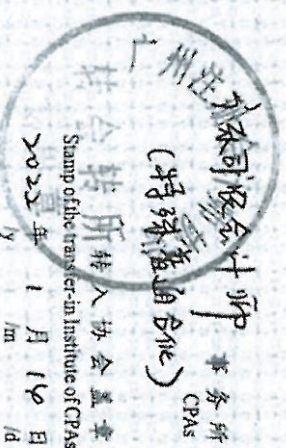 广州注
东司农会计师 事务所
CPAs
(特殊普通合伙)
转会转所
转入协会盖章
Stamp of the transfer-in Institute of CPAs
2022年 1月 16日
/y /m /d